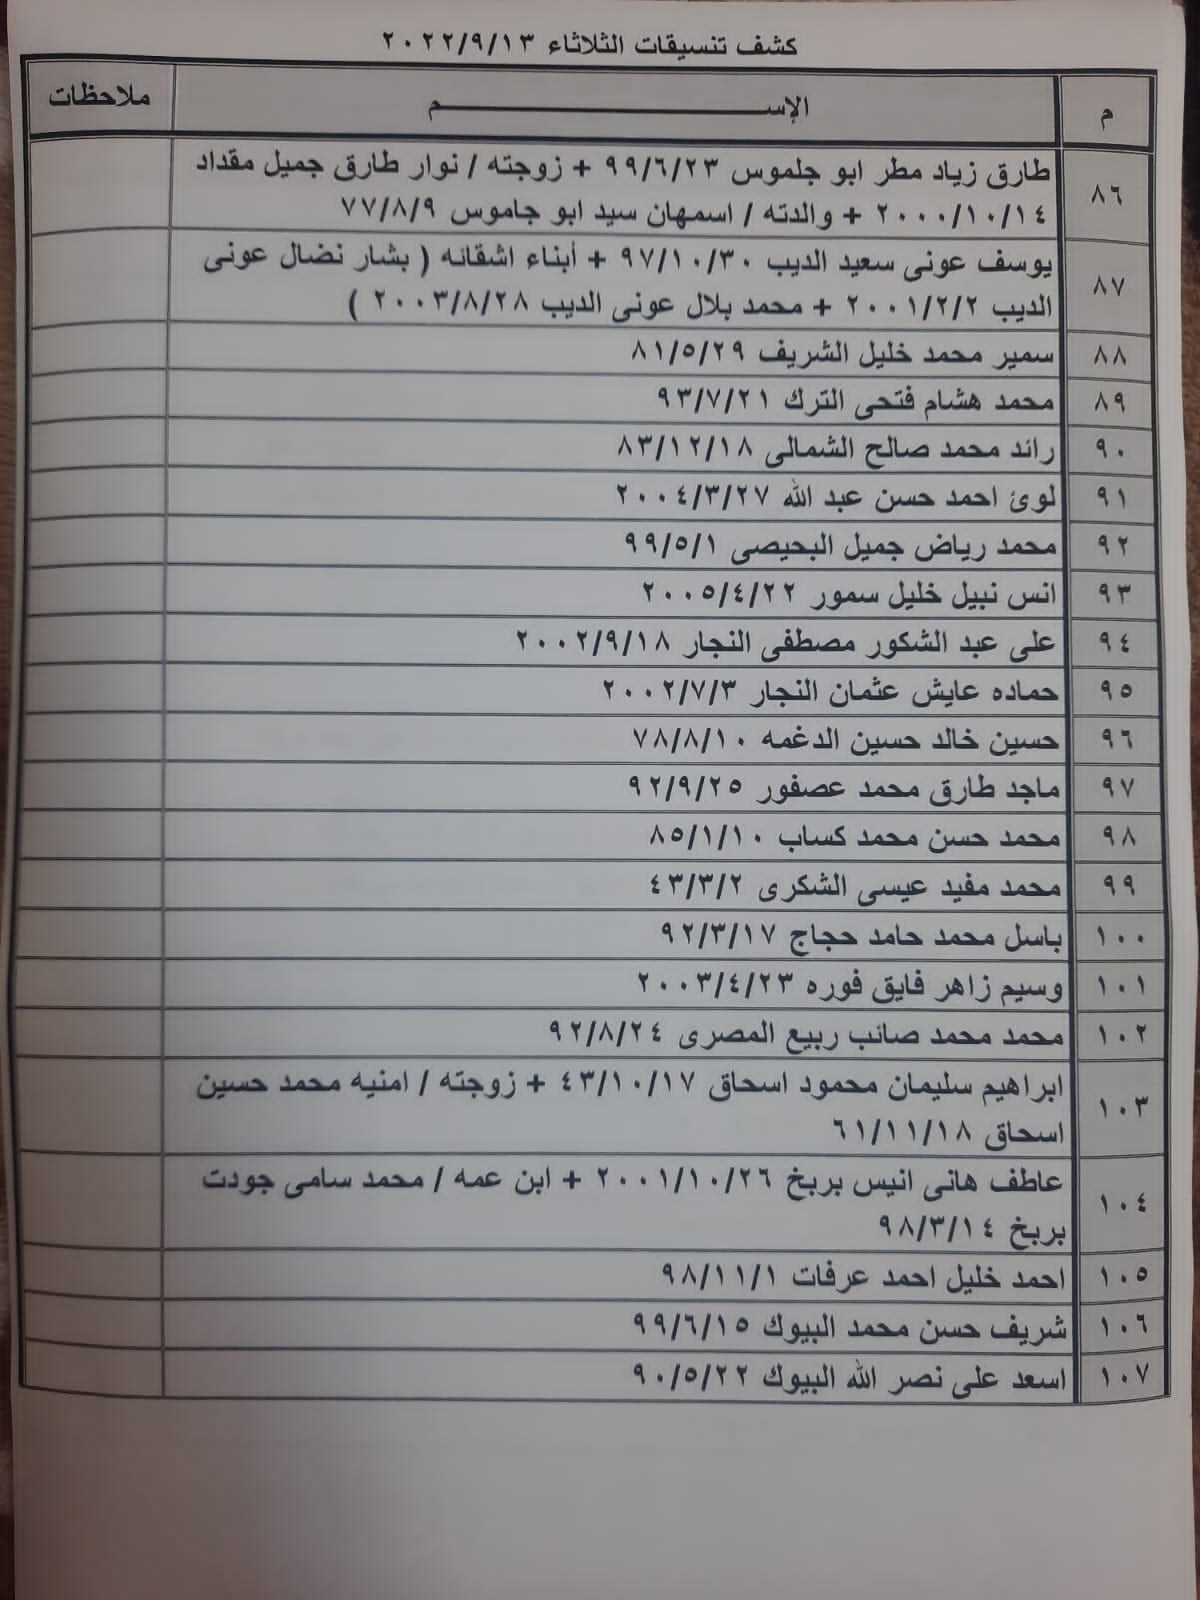 كشف تنسيقات الثلاثاء ٢٠٢٢/٩/١٣
م الإســـــــــم ملاحظات
٨٦ طارق زياد مطر ابو جلموس ٩٩/٦/٢٣ + زوجته / نوار طارق جميل مقداد
٢٠٠٠/١٠/١٤ + والدته / اسمهان سيد ابو جاموس ٧٧/٨/٩
٨٧ يوسف عونى سعيد الديب ٩٧/١٠/٣٠ + أبناء اشقائه ( بشار نضال عونى
الديب ٢٠٠١/٢/٢ + محمد بلال عونى الديب ٢٠٠٣/٨/٢٨ )
٨٨ سمير محمد خليل الشريف ٨١/٥/٢٩
٨٩ محمد هشام فتحى الترك ٩٣/٧/٢١
٩٠ رائد محمد صالح الشمالى ٨٣/١٢/١٨
٩١ لوئ احمد حسن عبد الله ٢٠٠٤/٣/٢٧
٩٢ محمد رياض جميل البحيصى ٩٩/٥/١
٩٣ انس نبيل خليل سمور ٢٠٠٥/٤/٢٢
٩٤ على عبد الشكور مصطفى النجار ٢٠٠٢/٩/١٨
٩٥ حماده عايش عثمان النجار ٢٠٠٢/٧/٣
٩٦ حسين خالد حسين الدغمه ٧٨/٨/١٠
٩٧ ماجد طارق محمد عصفور ٩٢/٩/٢٥
٩٨ محمد حسن محمد كساب ٨٥/١/١٠
٩٩ محمد مفيد عيسى الشكرى ٤٣/٣/٢
١٠٠ باسل محمد حامد حجاج ٩٢/٣/١٧
١٠١ وسيم زاهر فايق فوره ٢٠٠٣/٤/٢٣
١٠٢ محمد محمد صائب ربيع المصرى ٩٢/٨/٢٤
١٠٣ ابراهيم سليمان محمود اسحاق ٤٣/١٠/١٧ + زوجته / امنيه محمد حسين
اسحاق ٦١/١١/١٨
١٠٤ عاطف هانى انيس بربخ ٢٠٠١/١٠/٢٦ + ابن عمه / محمد سامى جودت
بربخ ٩٨/٣/١٤
١٠٥ احمد خليل احمد عرفات ٩٨/١١/١
١٠٦ شريف حسن محمد البيوك ٩٩/٦/١٥
١٠٧ اسعد على نصر الله البيوك ٩٠/٥/٢٢